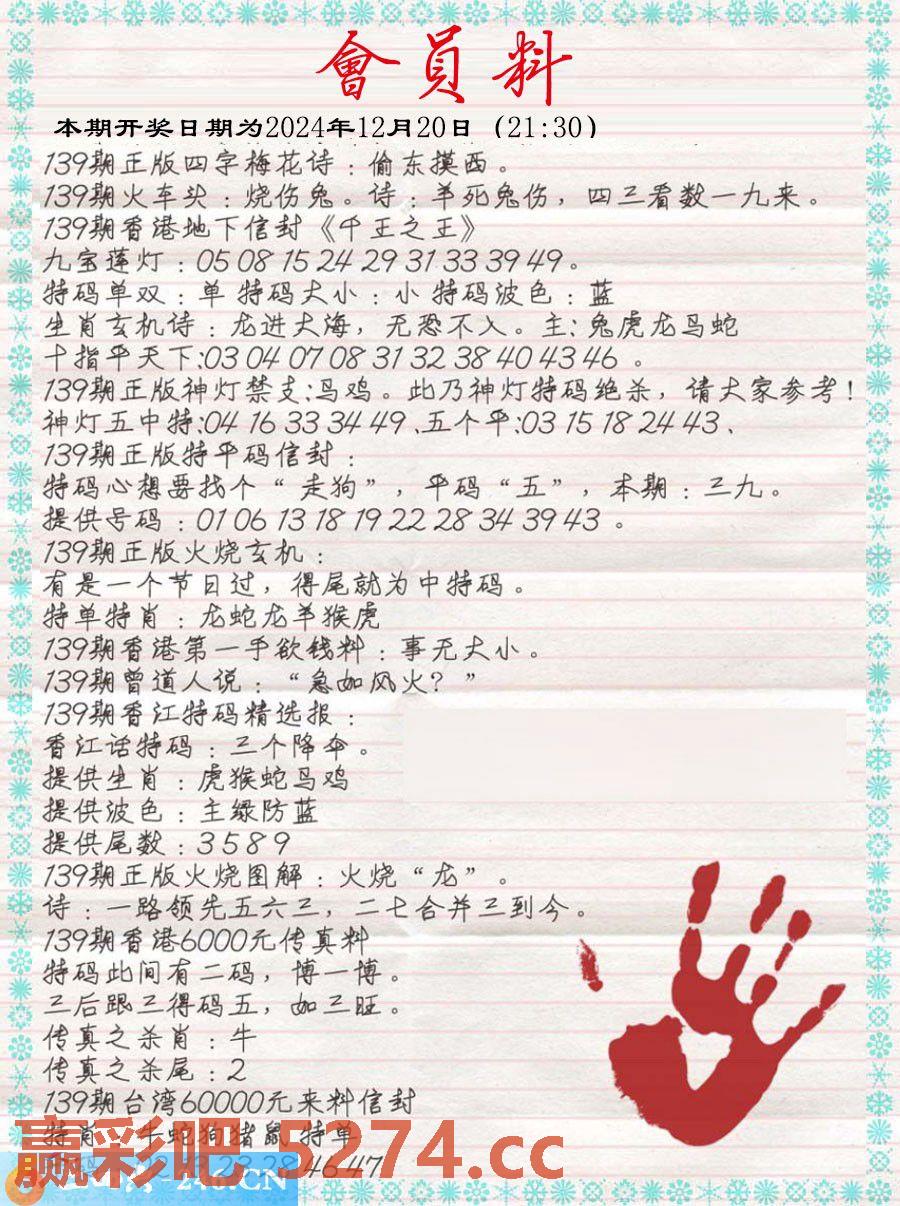 會員料
本期开奖日期为2024年12月20日（21:30）
139期正版四字梅花诗：偷东摸西。
139期火车头：烧伤兔。诗：羊死兔伤，四三看数一九来。
139期香港地下信封《千王之王》
九宝莲灯：05 08 15 24 29 31 33 39 49。
特码单双：单 特码大小：小 特码波色：蓝
生肖玄机诗：龙进大海，无恐不入。主:兔虎龙马蛇
十指平天下:03 04 07 08 31 32 38 40 43 46 。
139期正版神灯禁支:马鸡。此乃神灯特码绝杀，请大家参考！
神灯五中特:04 16 33 34 49 、五个平:03 15 18 24 43、
139期正版特平码信封：
特码心想要找个“走狗”，平码“五”，本期：三九。
提供号码：01 06 13 18 19 22 28 34 39 43 。
139期正版火烧玄机：
有是一个节日过，得尾就为中特码。
特单特肖：龙蛇龙羊猴虎
139期香港第一手欲钱料：事无大小。
139期曾道人说：“急如风火？”
139期香江特码精选报：
香江话特码：三个降伞。
提供生肖：虎猴蛇马鸡
提供波色：主绿防蓝
提供尾数：3 5 8 9
139期正版火烧图解：火烧“龙”。
诗：一路领先五六三，二七合并三到今。
139期香港6000元传真料
特码此间有二码，博一博。
三后跟三得码五，如三旺。
传真之杀肖：牛
传真之杀尾：2
139期台湾60000元来料信封
特肖：牛蛇狗猪鼠 特单
23 28 46 47
赢彩吧.5274.cc
246.CN